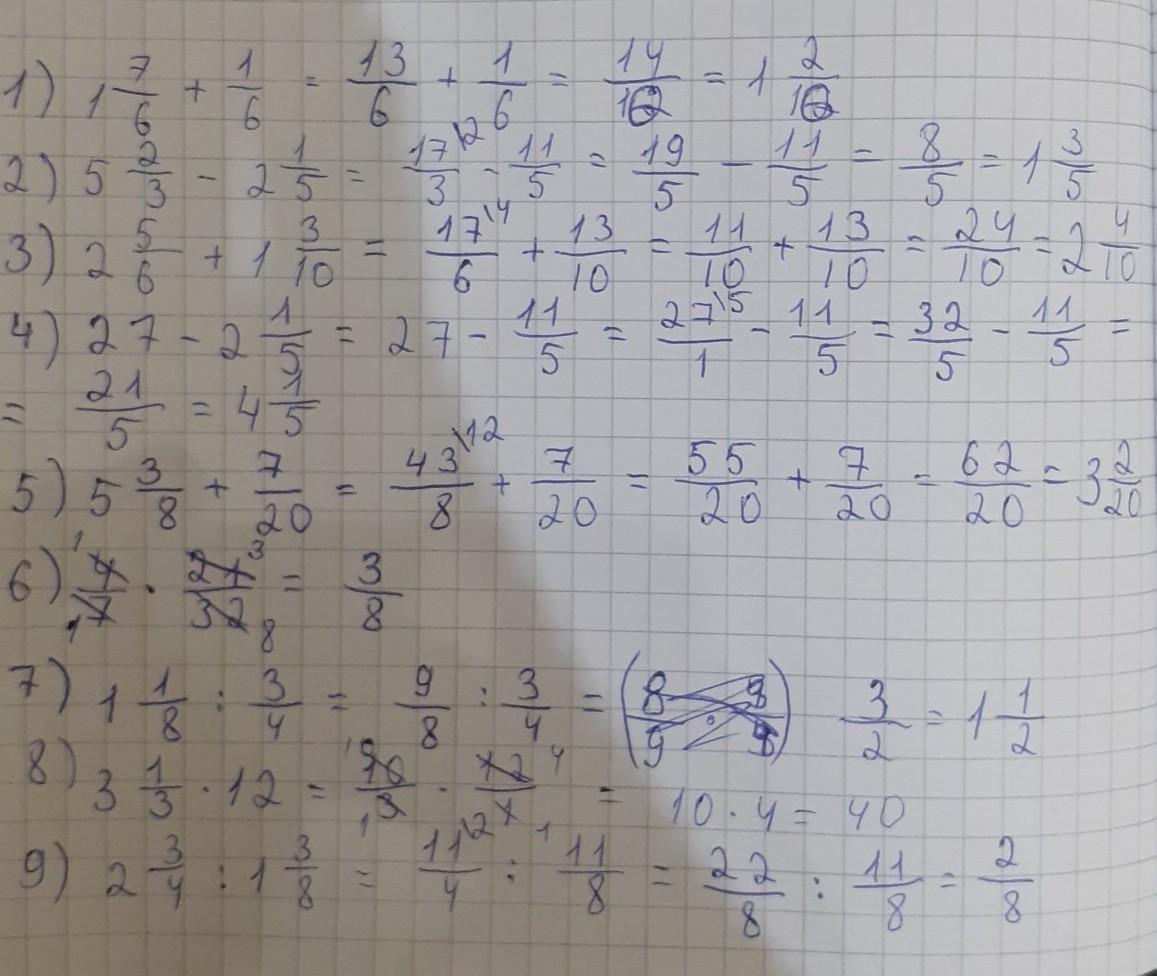 1) 1 7/6 + 1/6 = 13/6 + 1/6 = 14/12 = 1 2/12
2) 5 2/3 - 2 1/5 = 17\2/3 - 11/5 = 19/5 - 11/5 = 8/5 = 1 3/5
3) 2 5/6 + 1 3/10 = 17\4/6 + 13/10 = 11/10 + 13/10 = 24/10 = 2 4/10
4) 27 - 2 1/5 = 27 - 11/5 = 27\5/1 - 11/5 = 32/5 - 11/5 =
= 21/5 = 4 1/5
5) 5 3/8 + 7/20 = 43\12/8 + 7/20 = 55/20 + 7/20 = 62/20 = 3 2/20
6) 4/7 · 21/32 = 3/8
7) 1 1/8 : 3/4 = 9/8 : 3/4 = 3/2 = 1 1/2
8) 3 1/3 · 12 = 10/3 · 12/1 = 10 · 4 = 40
9) 2 3/4 : 1 3/8 = 11\2/4 : 11/8 = 22/8 : 11/8 = 2/8